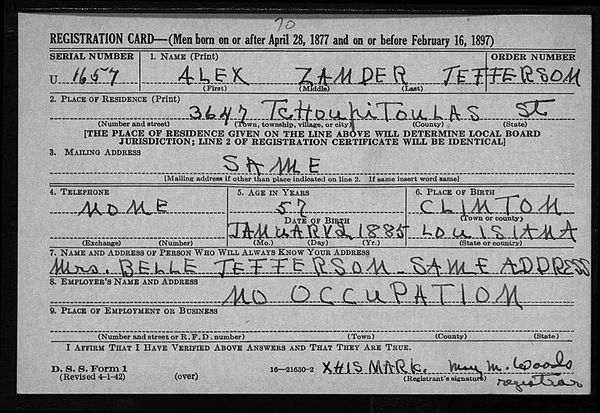 70
REGISTRATION CARD—(Men born on or after April 28, 1877 and on or before February 16, 1897)
SERIAL NUMBER 1. NAME (Print) ORDER NUMBER
U 1657 ALEX ZANDER JEFFERSON
(First) (Middle) (Last)
2. PLACE OF RESIDENCE (Print)
3647 TCHOUPITOULAS St
(Number and street) (Town, township, village, or city) (County) (State)
[THE PLACE OF RESIDENCE GIVEN ON THE LINE ABOVE WILL DETERMINE LOCAL BOARD
JURISDICTION; LINE 2 OF REGISTRATION CERTIFICATE WILL BE IDENTICAL]
3. MAILING ADDRESS
SAME
[Mailing address if other than place indicated on line 2. If same insert word same]
4. TELEPHONE 5. AGE IN YEARS 6. PLACE OF BIRTH
NONE 57 CLINTON
DATE OF BIRTH (Town or county)
JANUARY 2 1885 LOUISIANA
(Exchange) (Number) (Mo.) (Day) (Yr.) (State or country)
7. NAME AND ADDRESS OF PERSON WHO WILL ALWAYS KNOW YOUR ADDRESS
Mrs. BELLE JEFFERSON - SAME ADDRESS
8. EMPLOYER'S NAME AND ADDRESS
NO OCCUPATION
9. PLACE OF EMPLOYMENT OR BUSINESS
(Number and street or R. F. D. number) (Town) (County) (State)
I AFFIRM THAT I HAVE VERIFIED ABOVE ANSWERS AND THAT THEY ARE TRUE.
D. S. S. FORM 1
(Revised 4-1-42) (over) 16—21630-2 X HIS MARK. Mary M. Woods
(Registrant's signature)
registrar